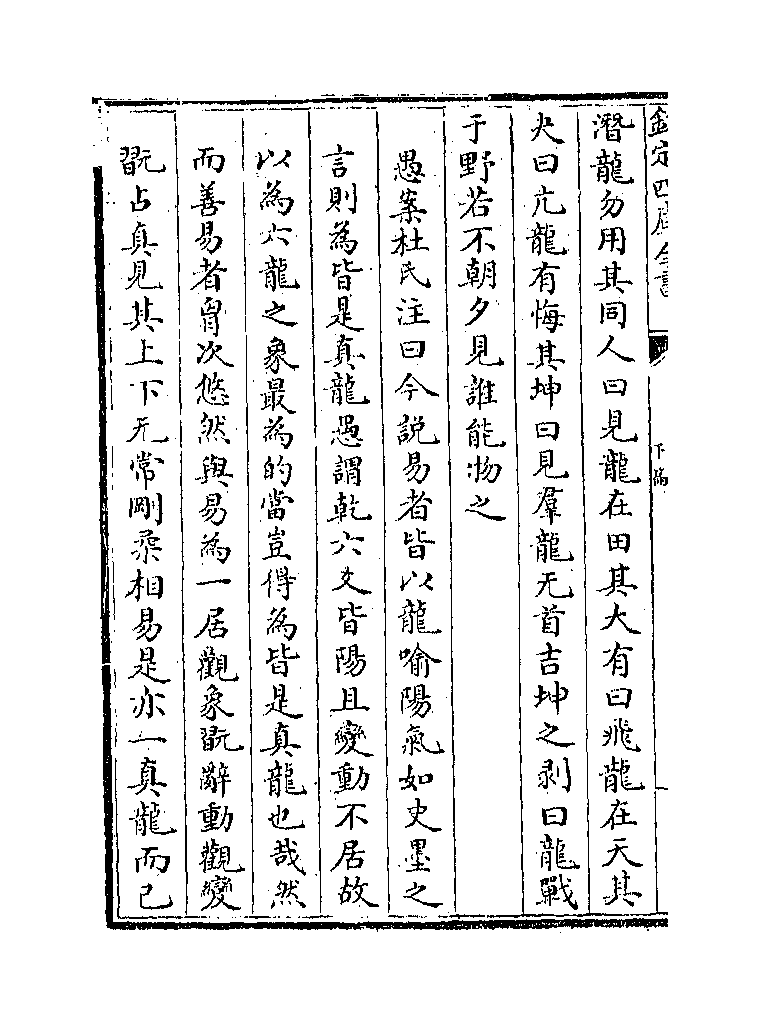 欽定四庫全書
下篇
潛龍勿用其同人曰見龍在田其大有曰飛龍在天其
夬曰亢龍有悔其坤曰見羣龍无首吉坤之剥曰龍戰
于野若不朝夕見誰能物之
愚案杜氏注曰今説易者皆以龍喻陽氣如史墨之
言則為皆是真龍愚謂乾六爻皆陽且變動不居故
以為六龍之象最為的當豈得為皆是真龍也哉然
而善易者胷次悠然與易為一居觀象翫辭動觀變
翫占真見其上下无常剛柔相易是亦一真龍而已